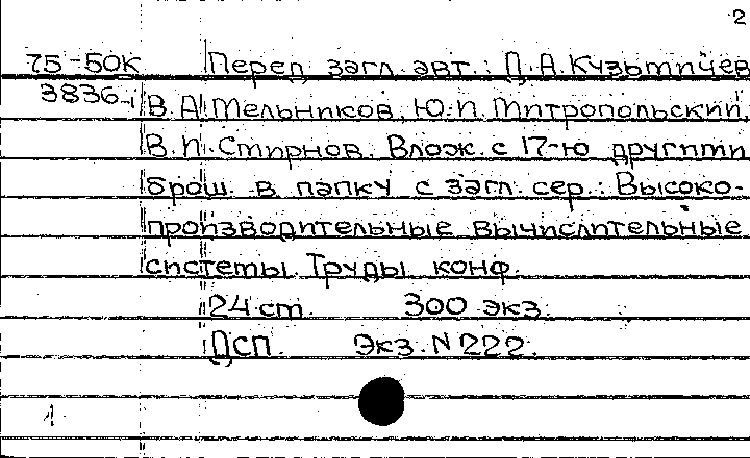 2
75-50К Перед загл. авт.: Д.А.Кузьмичев
3836-1 В.А.Мельников, Ю.И.Митропольский,
В.И.Смирнов. Влож. с 17-ю другими
брош. в папку с загл. сер.: Высоко-
производительные вычислительные
системы. Труды конф.
24 ст. 300 экз.
ДСП. Экз.N222.
1